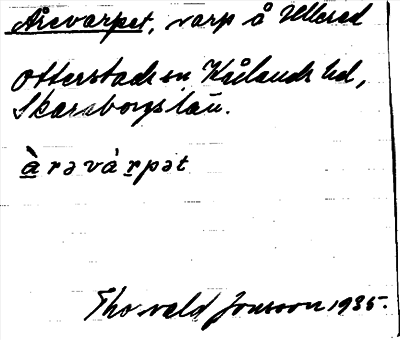 Årevarpet, varp å Ullered
Otterstads sn Kålands hd,
Skaraborgs län.
à rə và r̲pət
Thorvald Jonsson 1935.